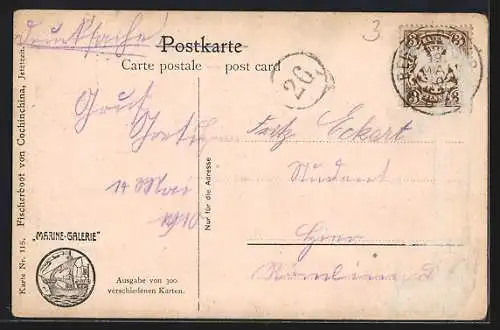 Drucksache!
Postkarte
Carte postale — post card
3
26
3 3
Fritz Eckart
Student
Hier
14 Mai
1910
Nur für die Adresse
Karte Nr. 116. Fischerboot von Cochinchina, Jetztzeit.
„MARINE-GALERIE“
Ausgabe von 300
verschiedenen Karten.